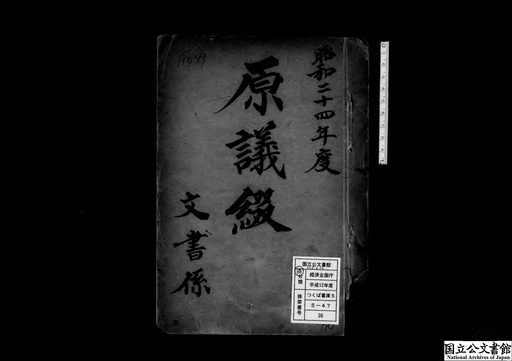 昭和二十四年度
原議綴
文書係
国立公文書館
分類
経済企画庁
平成12年度
つくば書庫5
排架番号
5-47
36
国立公文書館
National Archives of Japan